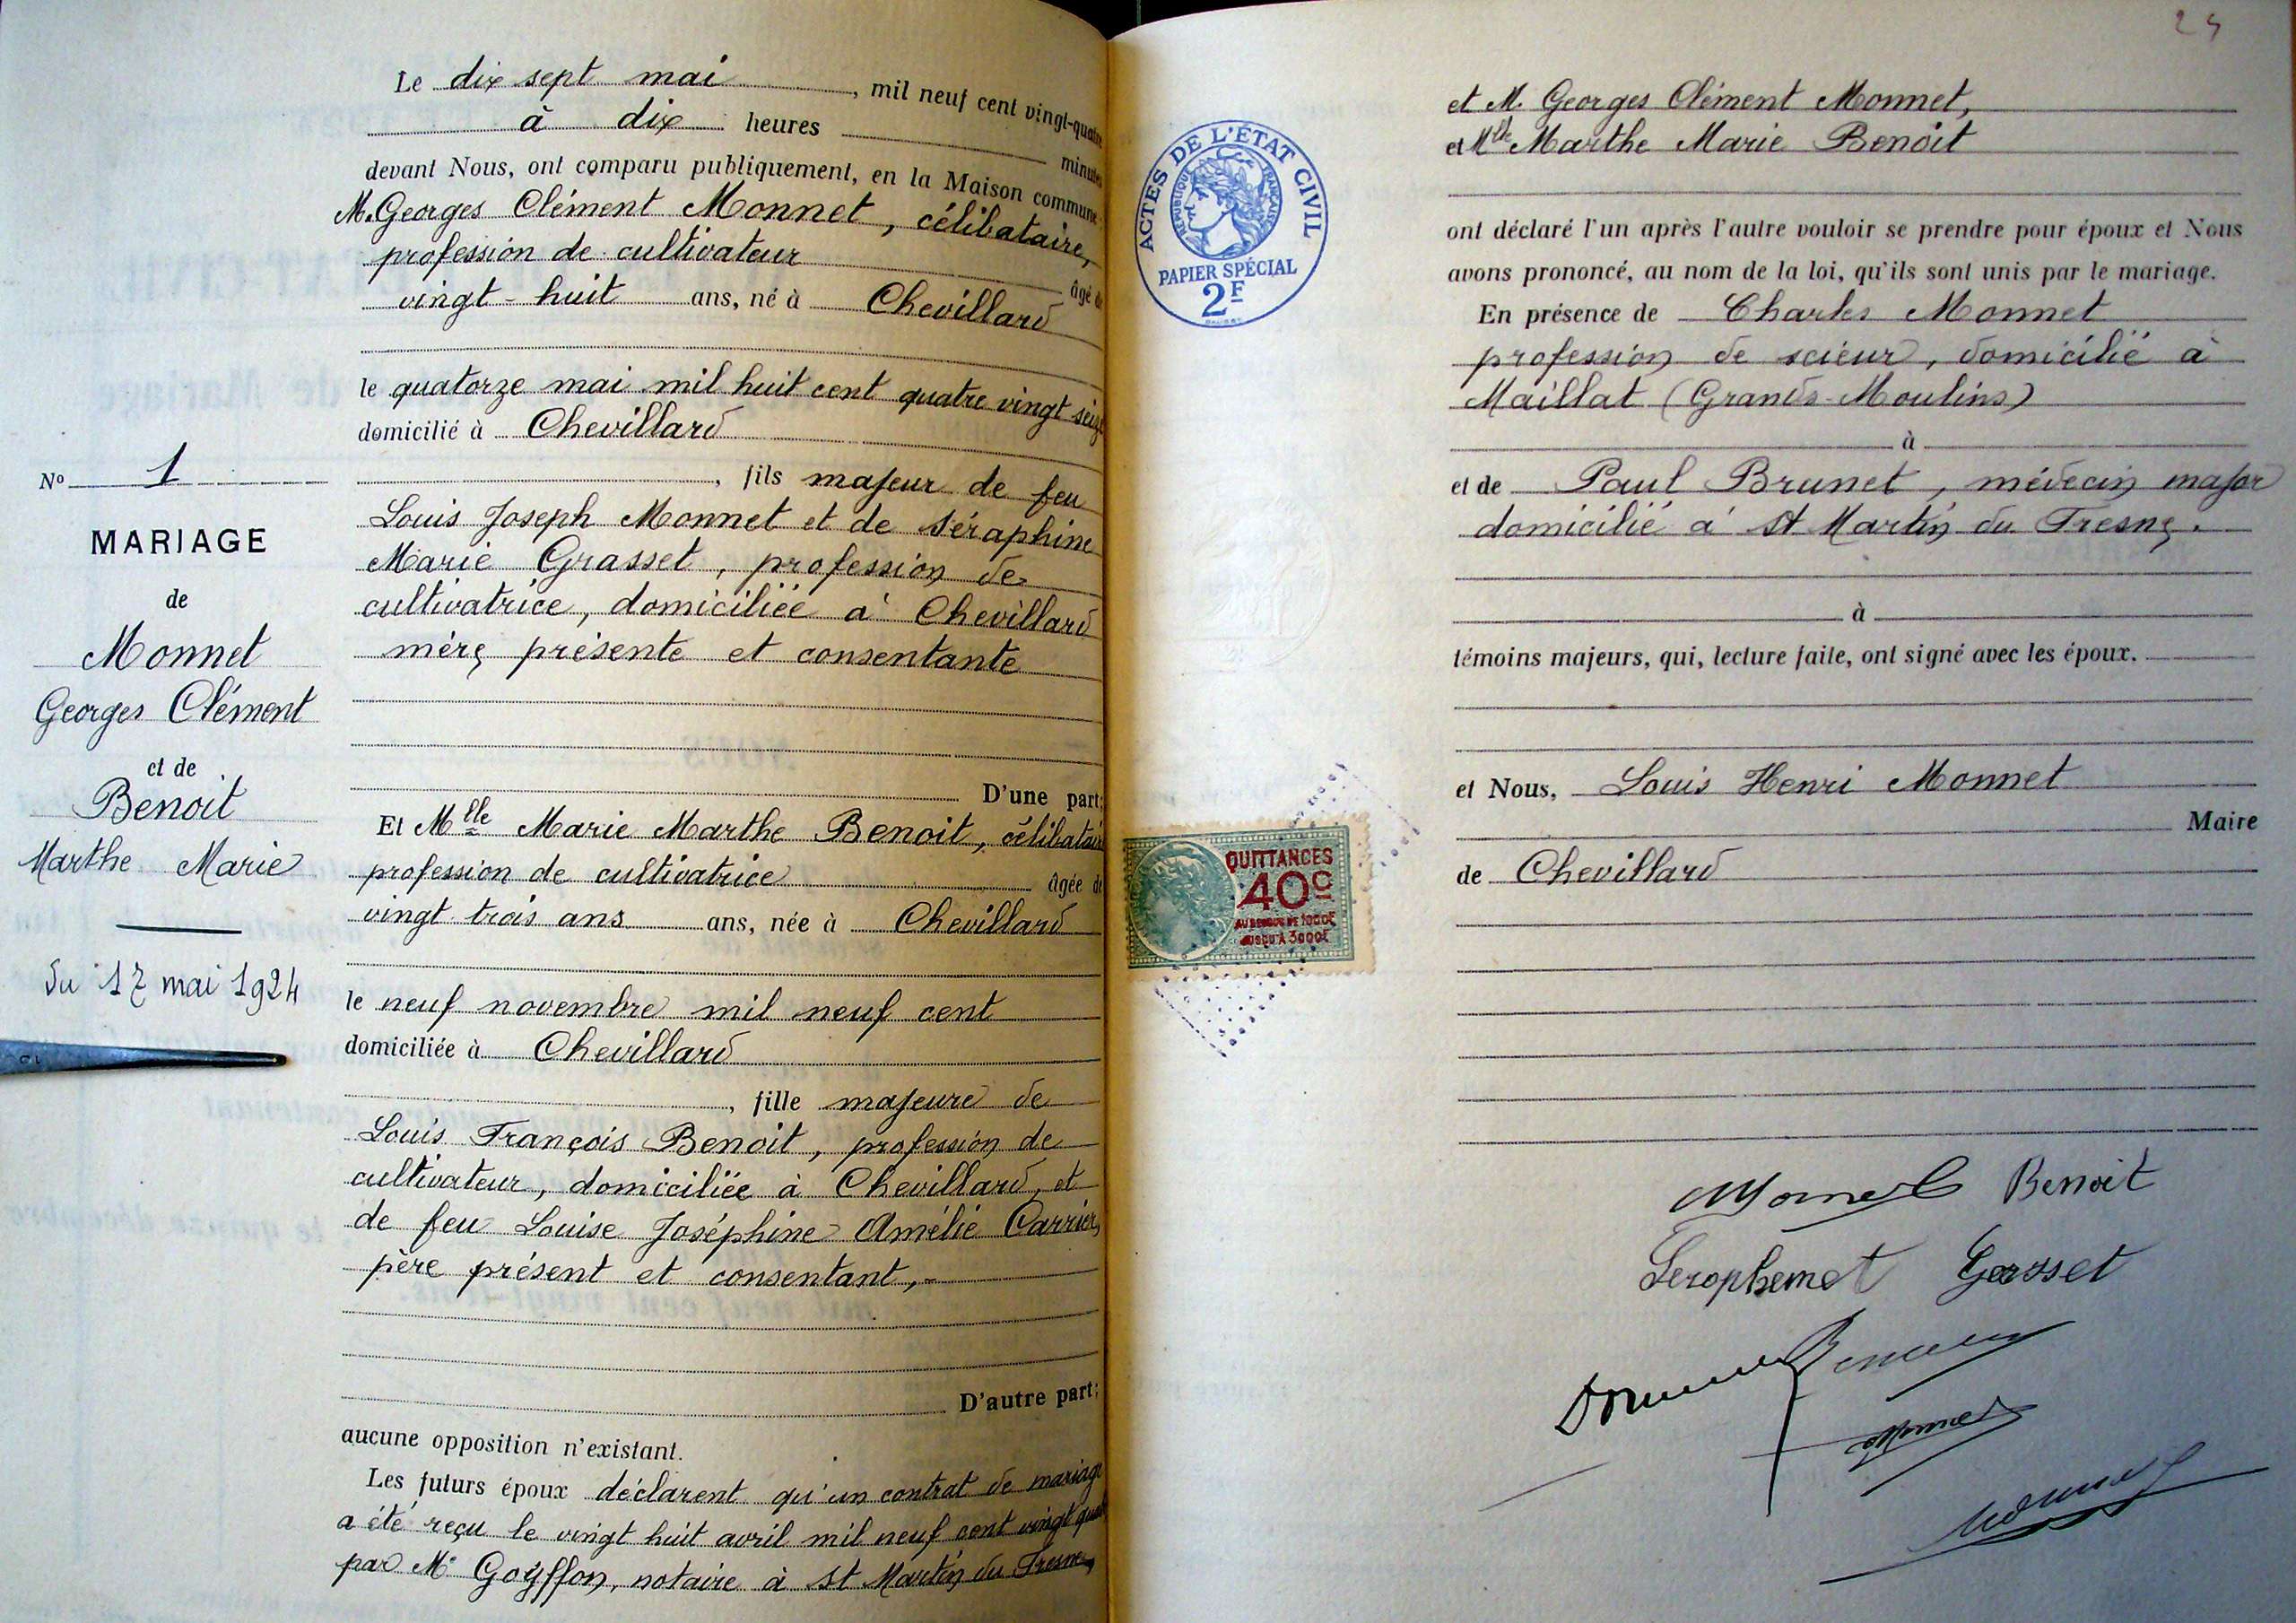 Nº 1
MARIAGE
de
Monnet
Georges Clément
et de
Benoit
Marthe Marie
Du 17 mai 1924
Le dix sept mai, mil neuf cent vingt-quatre
à dix heures minutes
devant Nous, ont comparu publiquement, en la Maison commune
M. Georges Clément Monnet, célibataire,
profession de cultivateur âgé de
vingt-huit ans, né à Chevillard
le quatorze mai mil huit cent quatre vingt seize
domicilié à Chevillard
, fils majeur de feu
Louis Joseph Monnet et de Séraphine
Marie Grasset, profession de
cultivatrice, domiciliée à Chevillard
mère présente et consentante
D'une part;
Et Mlle Marie Marthe Benoit, célibataire
profession de cultivatrice âgée de
vingt trois ans ans, née à Chevillard
le neuf novembre mil neuf cent
domiciliée à Chevillard
, fille majeure de
Louis François Benoit, profession de
cultivateur, domiciliée à Chevillard, et
de feu Louise Joséphine Amélie Carrier,
père présent et consentant,
D'autre part;
aucune opposition n'existant.
Les futurs époux déclarent qu'un contrat de mariage
a été reçu le vingt huit avril mil neuf cent vingt quatre
par Me Goyffon, notaire à St Martin du Fresne,
ACTES DE L'ÉTAT CIVIL
RÉPUBLIQUE FRANÇAISE
PAPIER SPÉCIAL
2F
QUITTANCES
40c
AU DESSUS DE 1000F
JUSQU'À 3000F
et M. Georges Clément Monnet,
et Mlle Marthe Marie Benoit
ont déclaré l'un après l'autre vouloir se prendre pour époux et Nous
avons prononcé, au nom de la loi, qu'ils sont unis par le mariage.
En présence de Charles Monnet
profession de scieur, domicilié à
Maillat (Grands-Moulins)
à
et de Paul Brunet, médecin major
domicilié à St Martin du Fresne.
à
témoins majeurs, qui, lecture faite, ont signé avec les époux.
et Nous, Louis Henri Monnet
Maire
de Chevillard
Monnet Benoit
Grasset
Monnet
Monnet